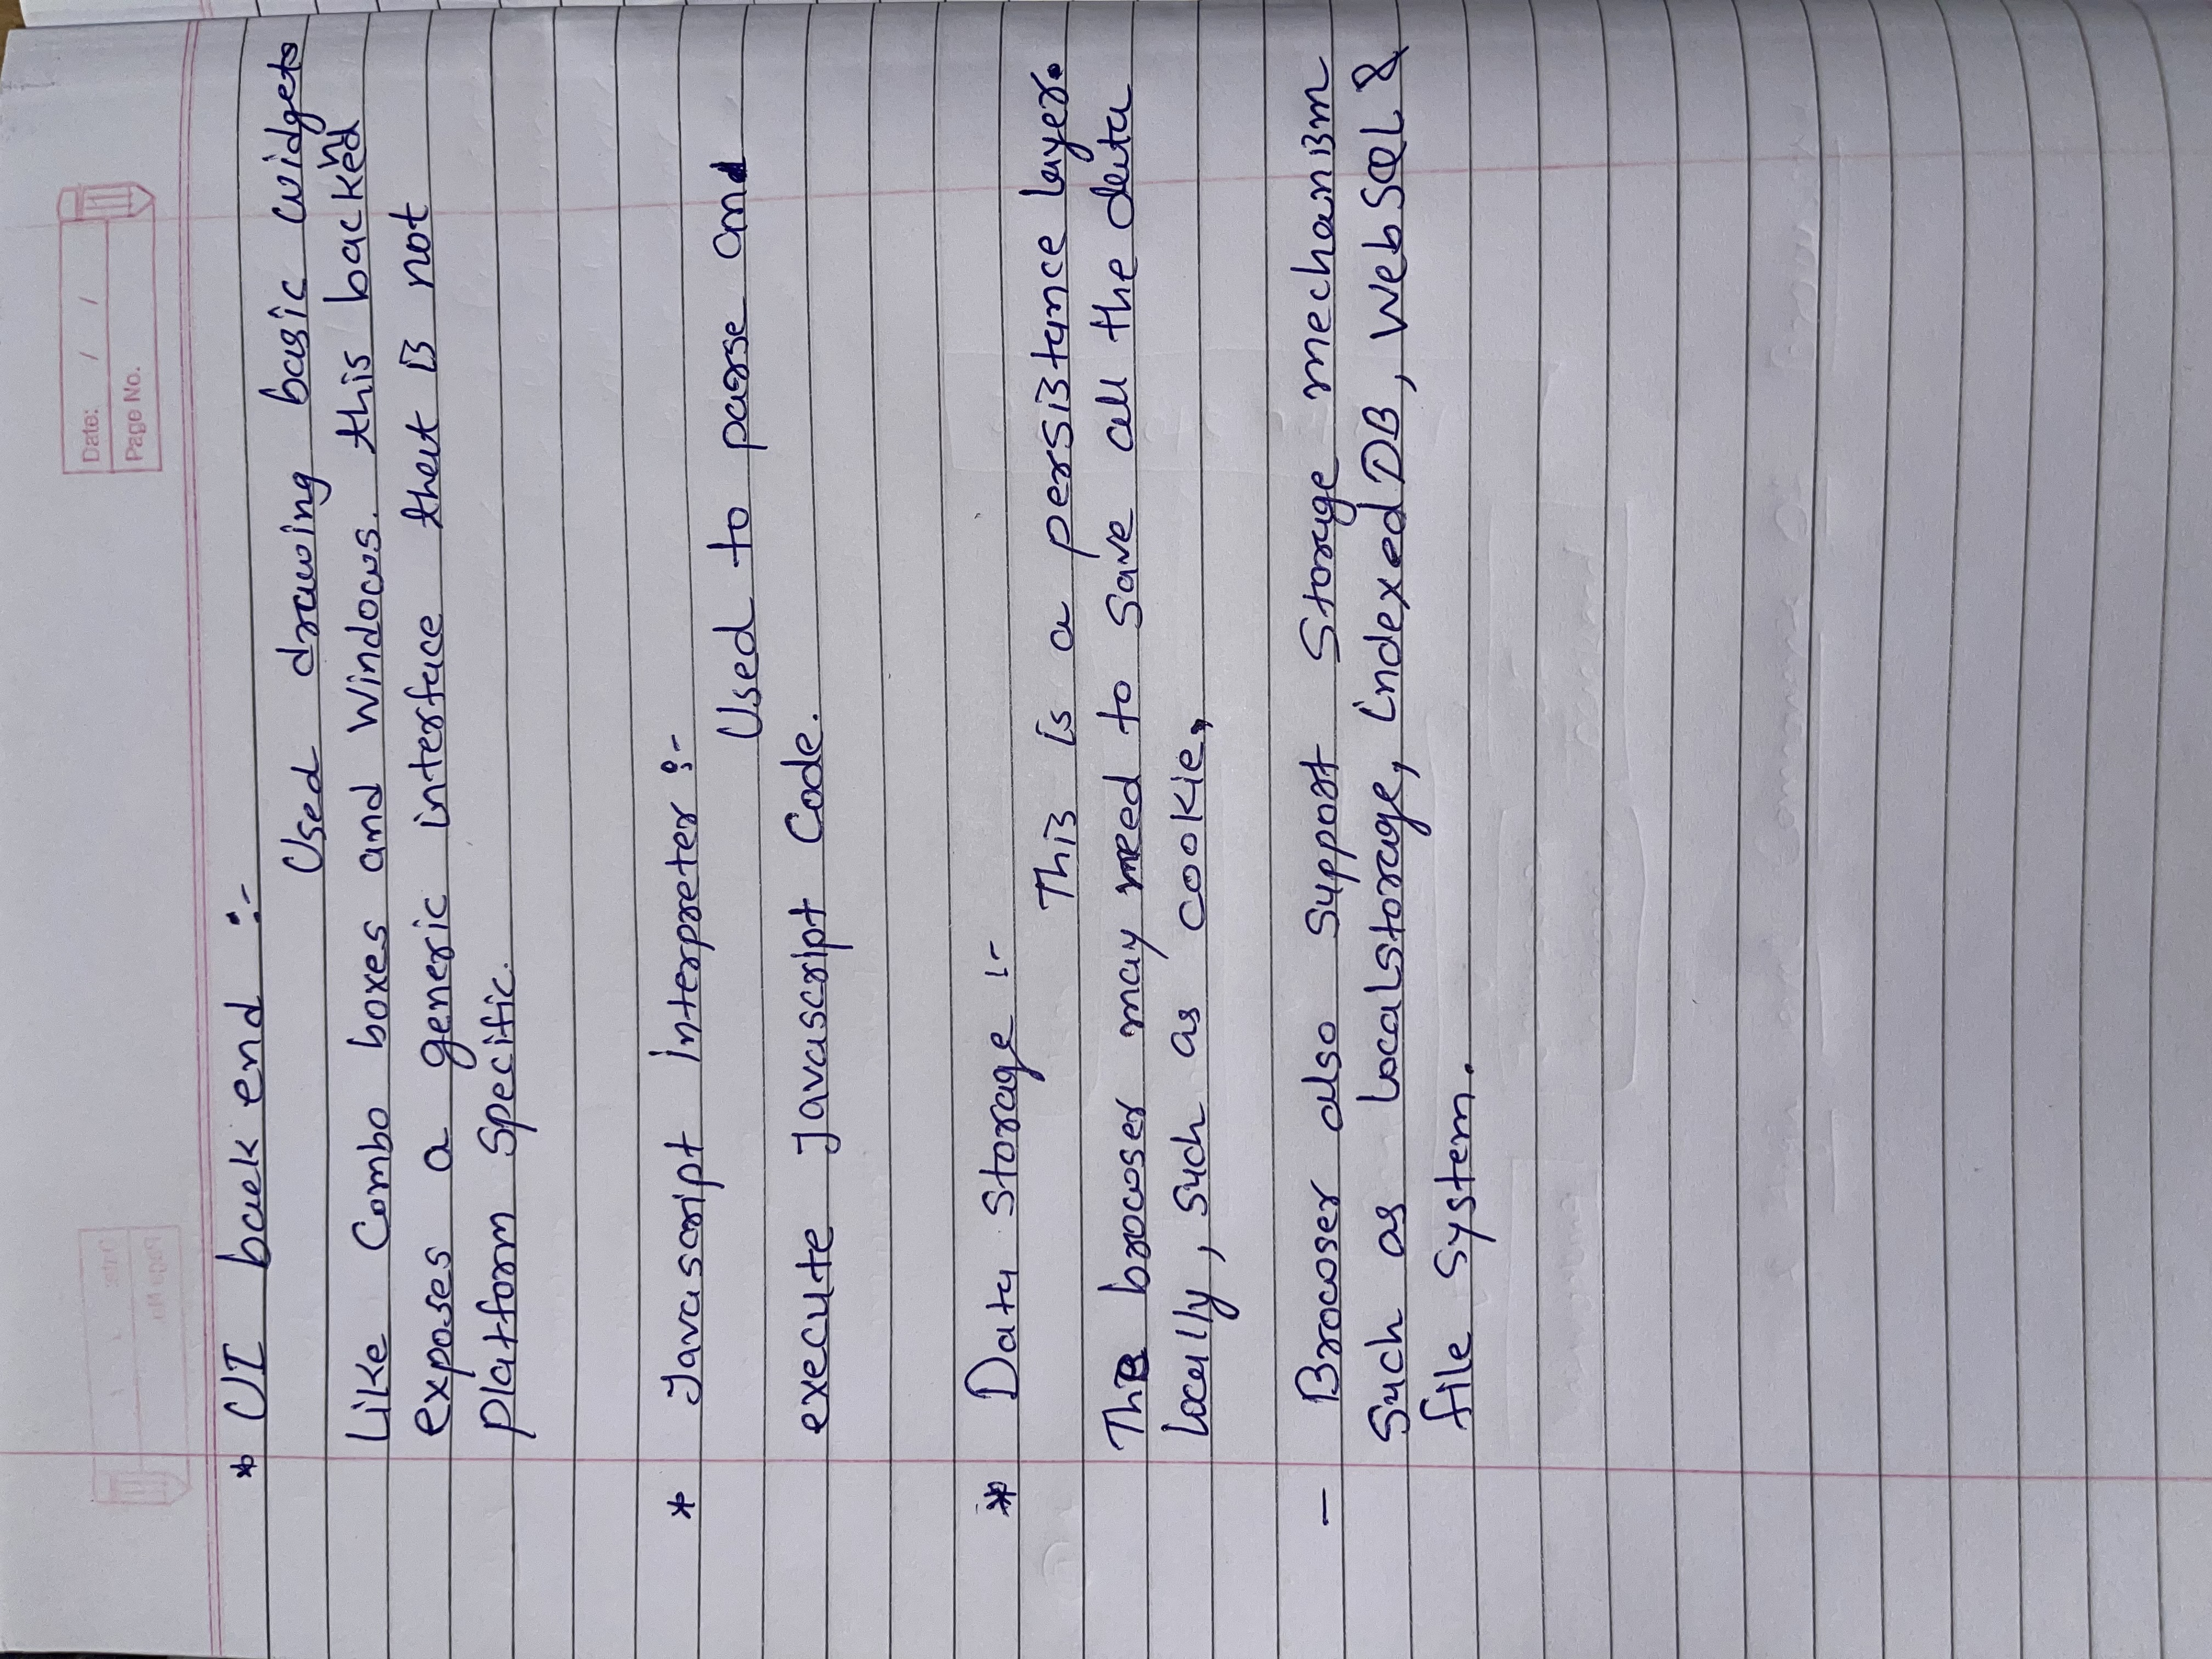 Date: / /
Page No.
* UI back end :-
Used drawing basic widgets
Like Combo boxes and Windows. this backend
exposes a generic interface that is not
Platform Specific.
* Javascript interpreter :-
Used to parse and
execute Javascript Code.
* Data Storage :-
This is a persistance layer.
The browser may need to save all the data
locally, such as cookie,
- Browser also support Storage mechanism
such as localstorage, indexedDB, WebSQL &
file system.